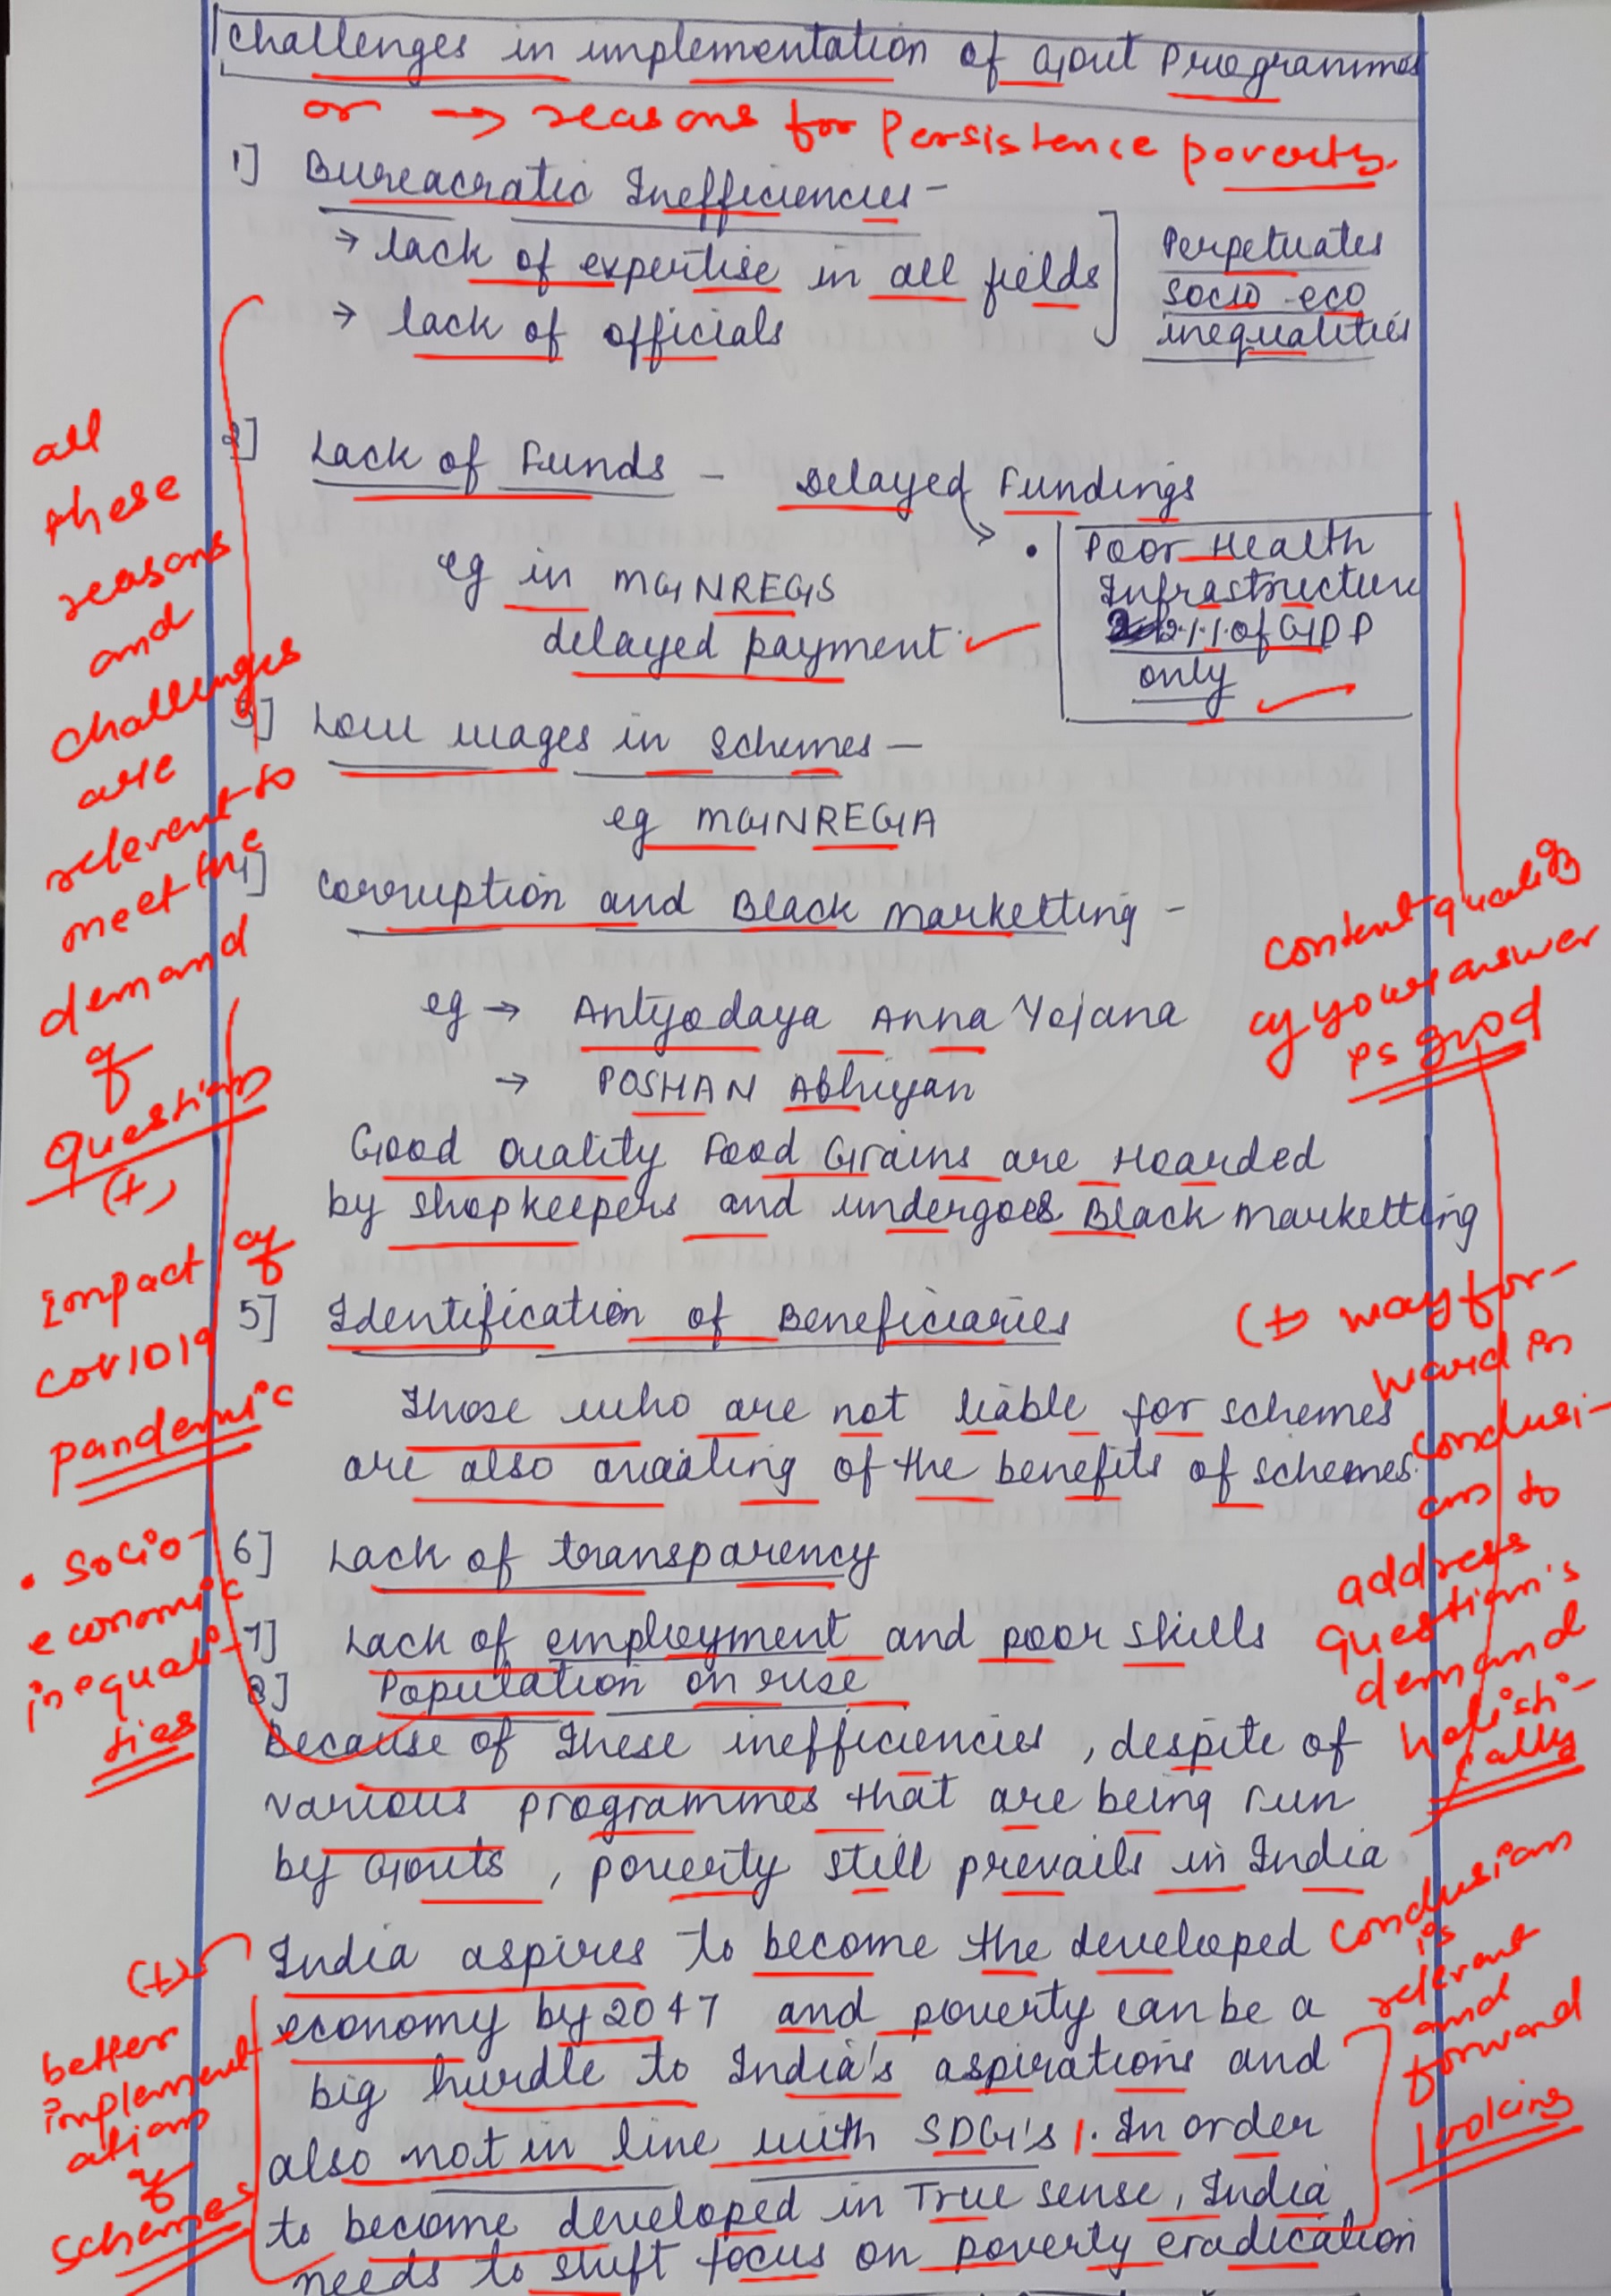 Challenges in implementation of Govt Programmes
or → reasons for Persistence poverty.
1] Bureacratic Inefficiencies -
→ lack of expertise in all fields
→ lack of officials
Perpetuates
socio-eco
inequalities
2] Lack of Funds - Delayed Fundings
eg in MGNREGS
delayed payment
• Poor Health
Infrastructure
2.1% of GDP
only
3] Low wages in schemes -
eg MGNREGA
4] Corruption and Black marketting -
eg → Antyodaya Anna Yojana
→ POSHAN Abhiyan
Good Quality Food Grains are Hoarded
by shopkeepers and undergoes Black marketting
5] Identification of Beneficiaries
Those who are not liable for schemes
are also availing of the benefits of schemes.
6] Lack of transparency
7] Lack of employment and poor skills
8] Population on rise
Because of these inefficiencies, despite of
various programmes that are being run
by Govts, poverty still prevails in India
India aspires to become the developed
economy by 2047 and poverty can be a
big hurdle to India's aspirations and
also not in line with SDG's 1. In order
to become developed in True sense, India
needs to shift focus on poverty eradication
all
these
reasons
and
challenges
are
relevent to
meet the
demand
of
Question
(+)
Impact of
COVID19
pandemic
• Socio-
economic
inequali-
ties
(+)
better
implement
ations
of
schemes
content quality
of your answer
is good
(+) way for-
ward in
conclusi-
ons to
address
Question's
demand
holisti-
cally
Conclusion
is
relevant
and
forward
looking